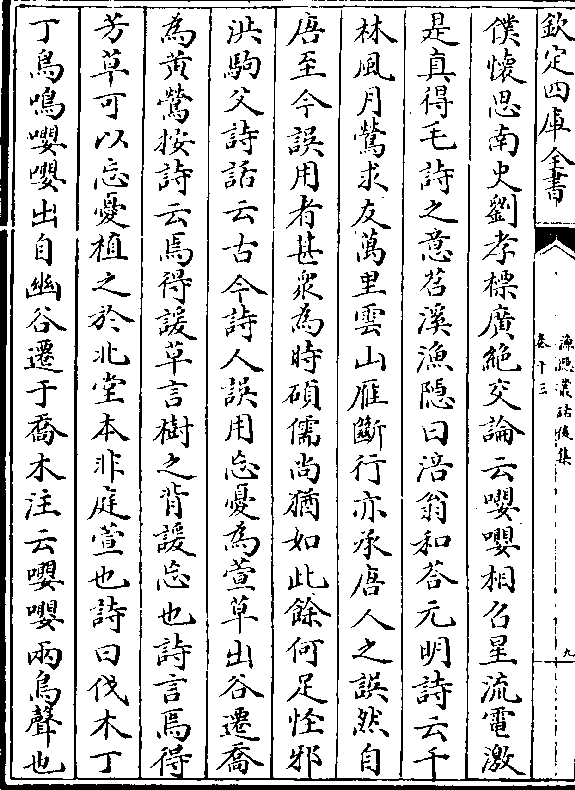 欽定四庫全書
漁隱叢話後集
卷十三
九
僕懷思南史劉孝標廣絶交論云嚶嚶相召星流電激
是真得毛詩之意苕溪漁隠曰涪翁和荅元明詩云千
林風月鶯求友萬里雲山雁斷行亦承唐人之誤然自
唐至今誤用者甚衆為時碩儒尚猶如此餘何足怪邪
洪駒父詩話云古今詩人誤用忘憂為萱草出谷遷喬
為黄鶯按詩云焉得諼草言樹之背諼忘也詩言焉得
芳草可以忘憂植之於北堂本非庭萱也詩曰伐木丁
丁鳥鳴嚶嚶出自幽谷遷于喬木注云嚶嚶兩鳥聲也